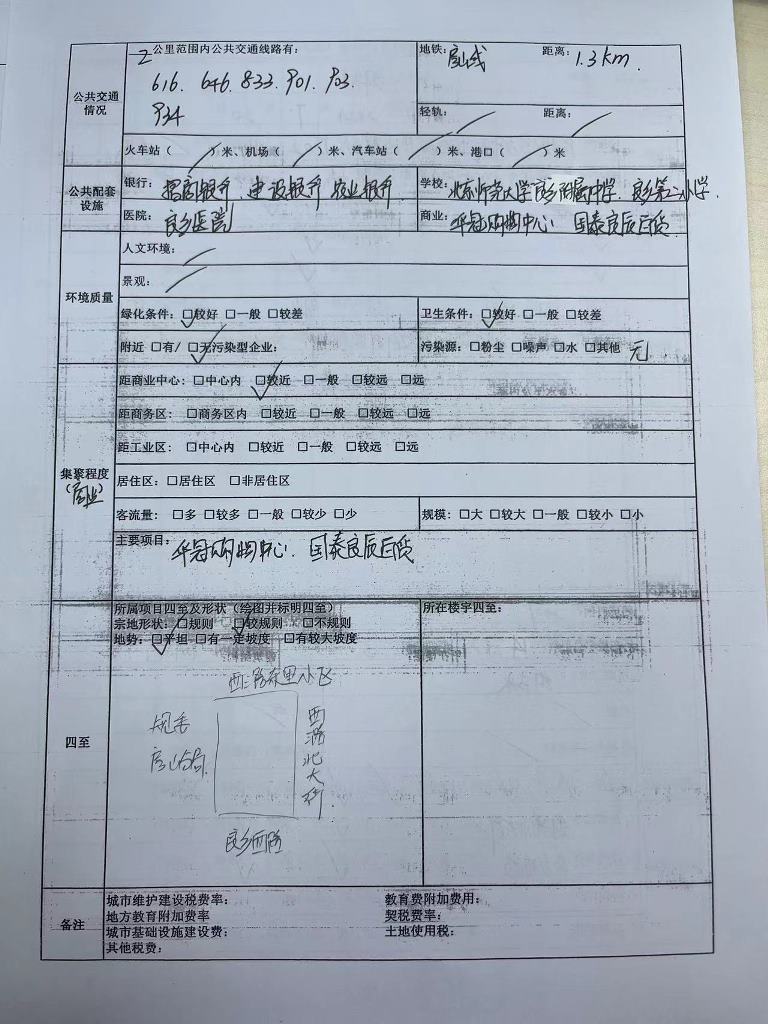 2公里范围内公共交通线路有：
616. 646. 833. 901. 903.
934
地铁：房山线 距离：1.3km.
轻轨： 距离：
公共交通
情况
火车站（ ）米、机场（ ）米、汽车站（ ）米、港口（ ）米
公共配套
设施
银行：招商银行、建设银行 农业银行
学校：北京师范大学良乡附属中学、良乡第二小学.
医院：良乡医院
商业：华冠购物中心、国泰良辰百货
环境质量
人文环境：
景观：
绿化条件：□较好 □一般 □较差
卫生条件：□较好 □一般 □较差
附近 □有/ □无污染型企业：
污染源：□粉尘 □噪声 □水 □其他 无.
集聚程度
（商业）
距商业中心：□中心内 □较近 □一般 □较远 □远
距商务区：□商务区内 □较近 □一般 □较远 □远
距工业区：□中心内 □较近 □一般 □较远 □远
居住区：□居住区 □非居住区
客流量：□多 □较多 □一般 □较少 □少
规模：□大 □较大 □一般 □较小 □小
主要项目：华冠购物中心、国泰良辰百货
四至
所属项目四至及形状（绘图并标明四至）
宗地形状：□规则 □较规则 □不规则
地势：□平坦 □有一定坡度 □有较大坡度
所在楼宇四至：
西路东里小区
规委
房山分局.
西潞北大街
良乡西路
备注
城市维护建设税费率： 教育费附加费用：
地方教育附加费率 契税费率：
城市基础设施建设费： 土地使用税：
其他税费：